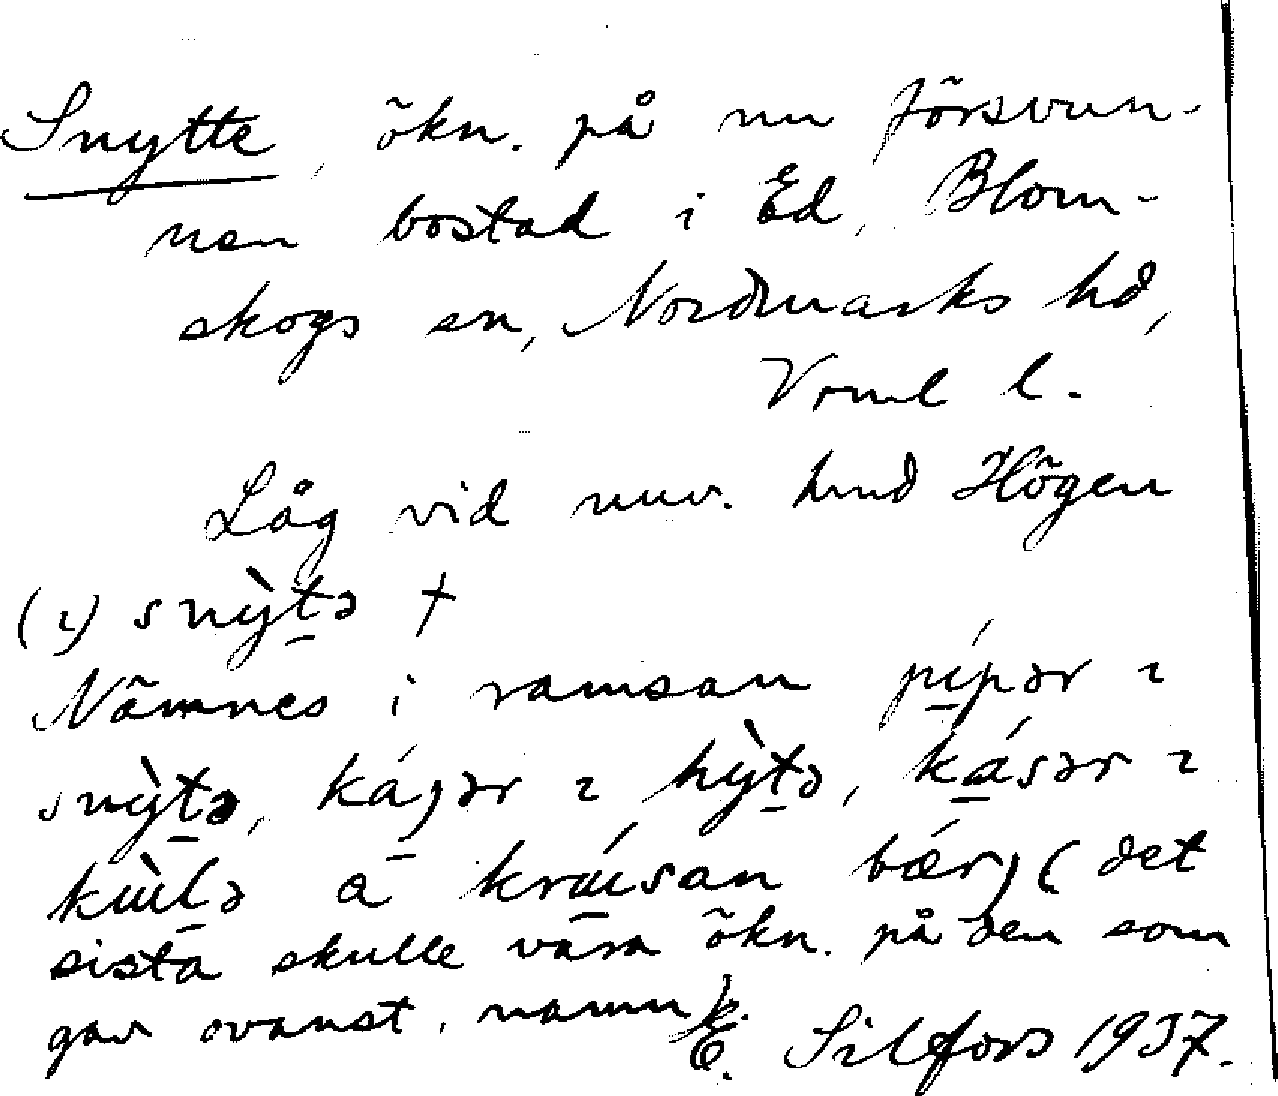 Snytte, ökn. på nu försvun-
nen bostad i Ed, Blom-
skogs sn, Nordmarks hd,
Vrml l.
Låg vid nuv. hmd Högen
(ı) snỳtə †
Nämnes i ramsan pípər ı
snỳtə, kájər ı hỳtə, kásər ı
kùlə a krúsan bærj (det
sista skulle vara ökn. på den som
gav ovanst. namn).
E. Silfors 1937.